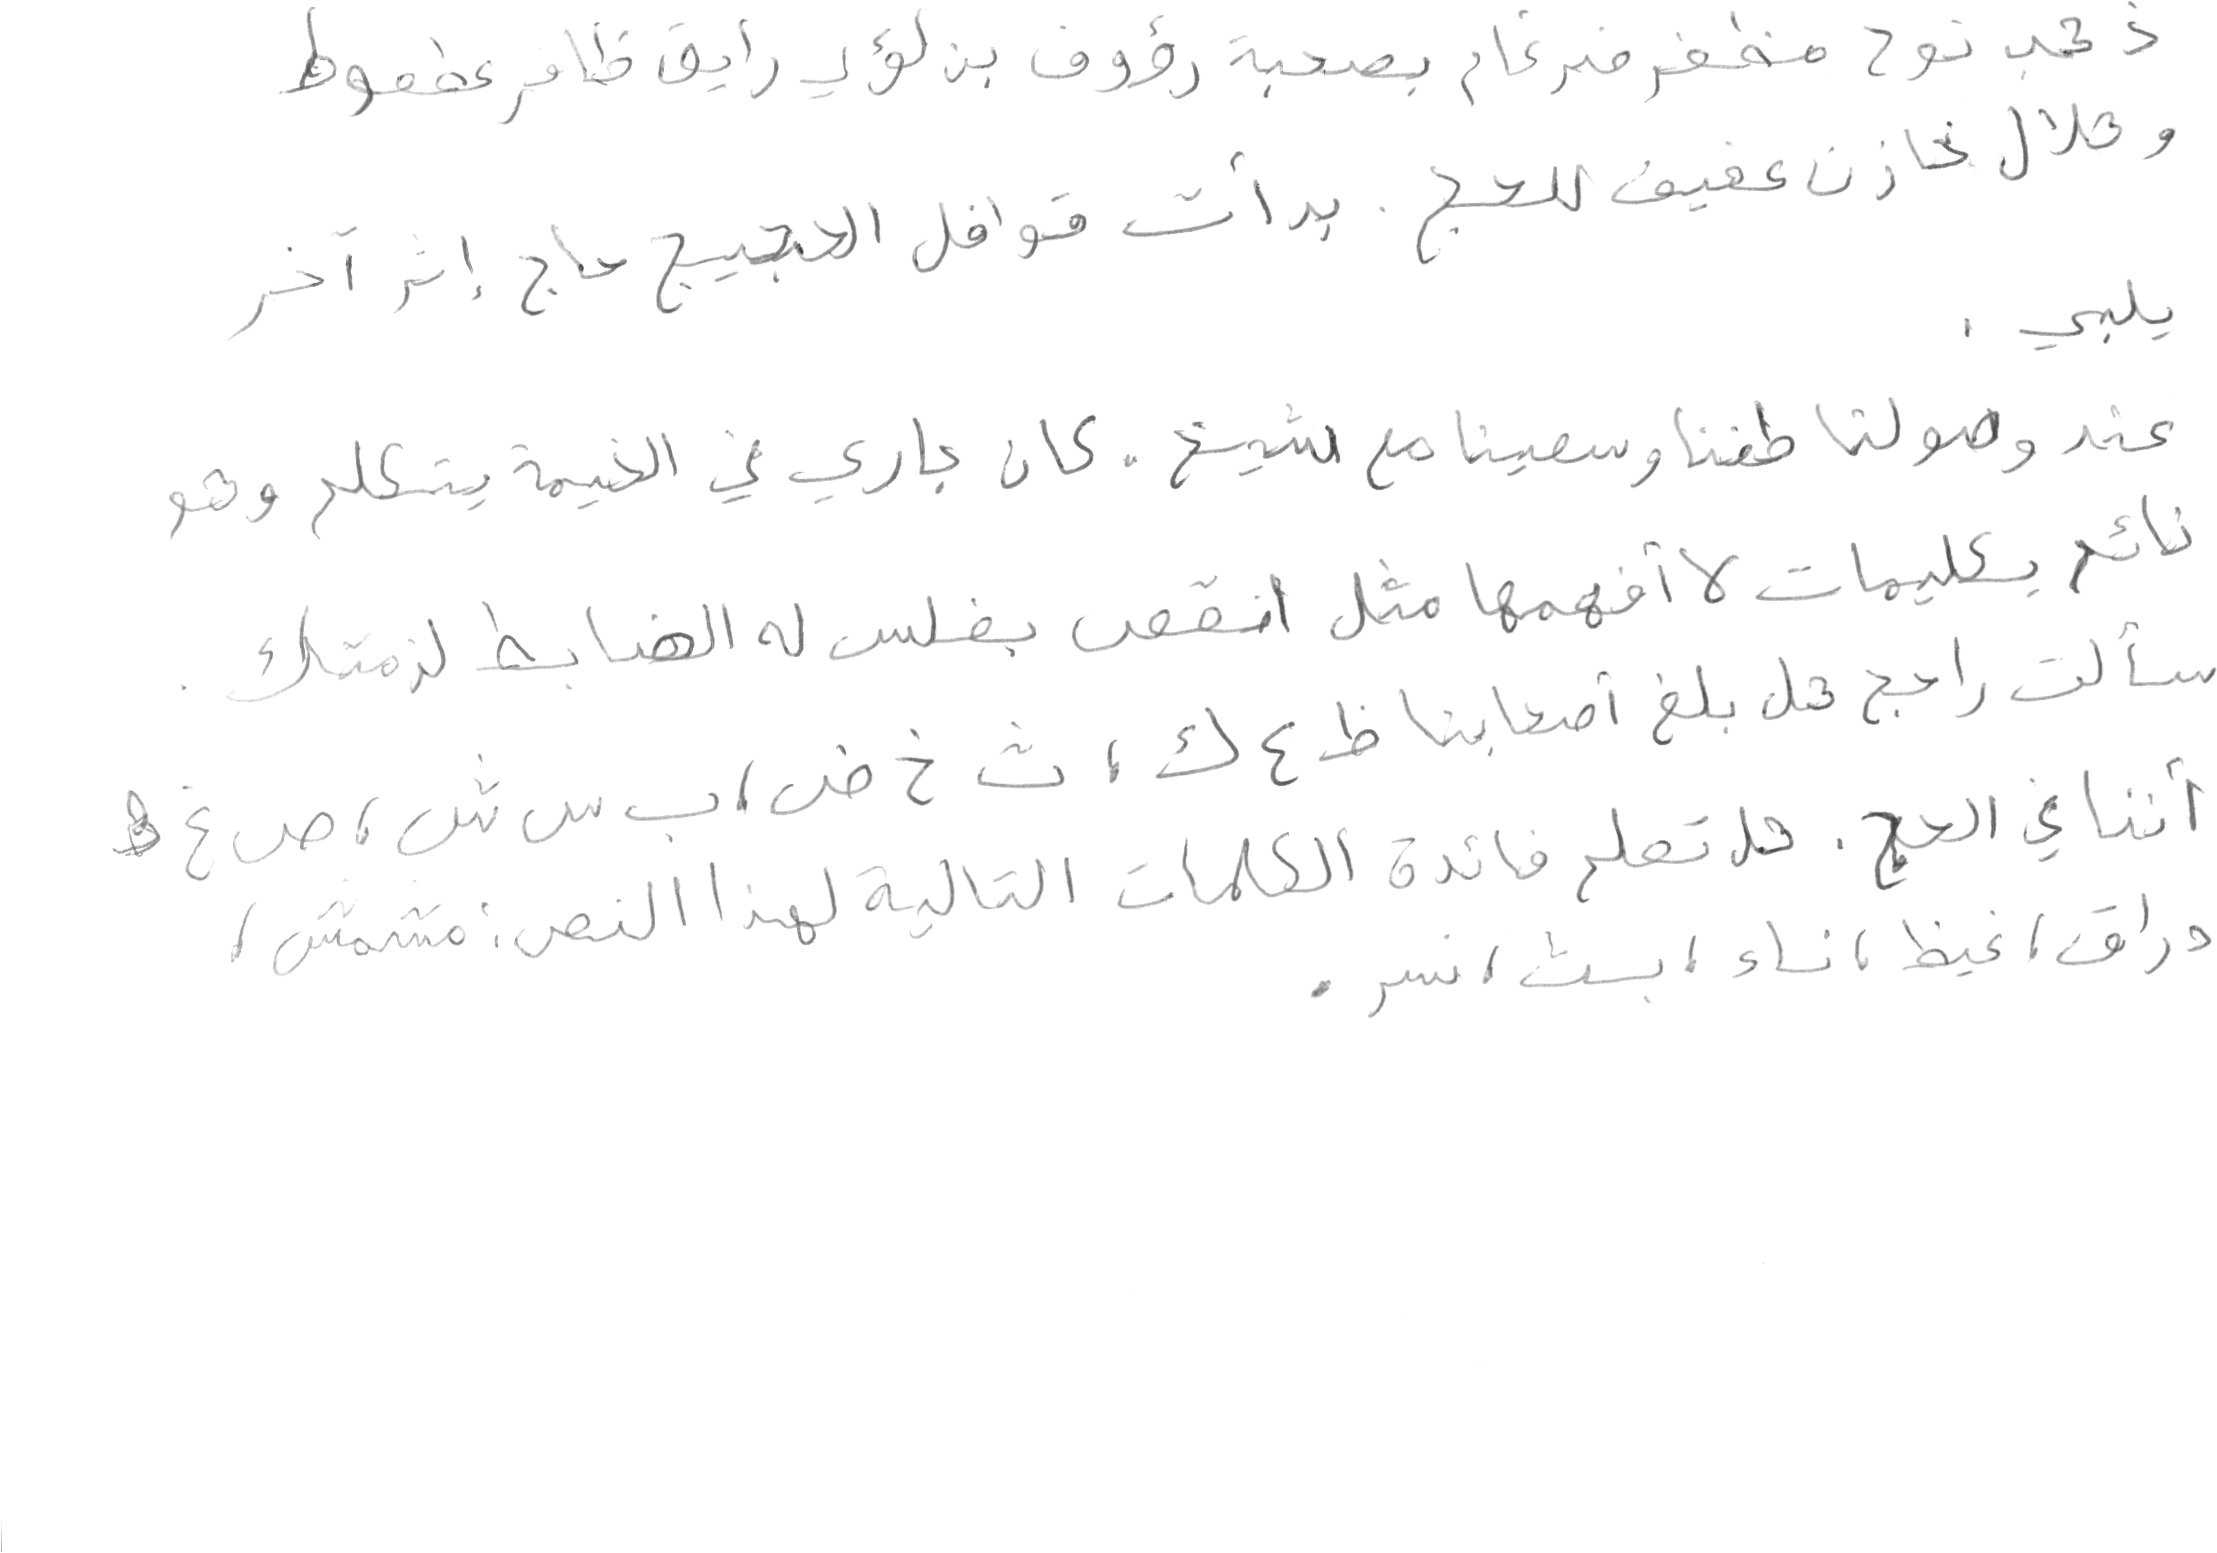 ذهب نوح مظفر ضرغام بصحبة رؤوف بن لؤي رايق ظافر عظموط
وهلال خازن عفيف للحج . بدأت قوافل الحجيج حاج إثر آخر
يلبي .
عند وصولنا طفنا وسعينا مع الشيخ . كان جاري في الخيمة يتكلم وهو
نائم بكليمات لا أفهمها مثل انققص بغلس له الضابط لزمتك .
سألت راجح هل بلغ أصحابنا ظ ع ك ، ث خ ض ، ب س ش ، ص غ ه
أننا في الحج . هل تعلم فائدة الكلمات التالية لهذا النص : مشمش ،
دراق ، غيظ ، ناء ، بث ، نسر .